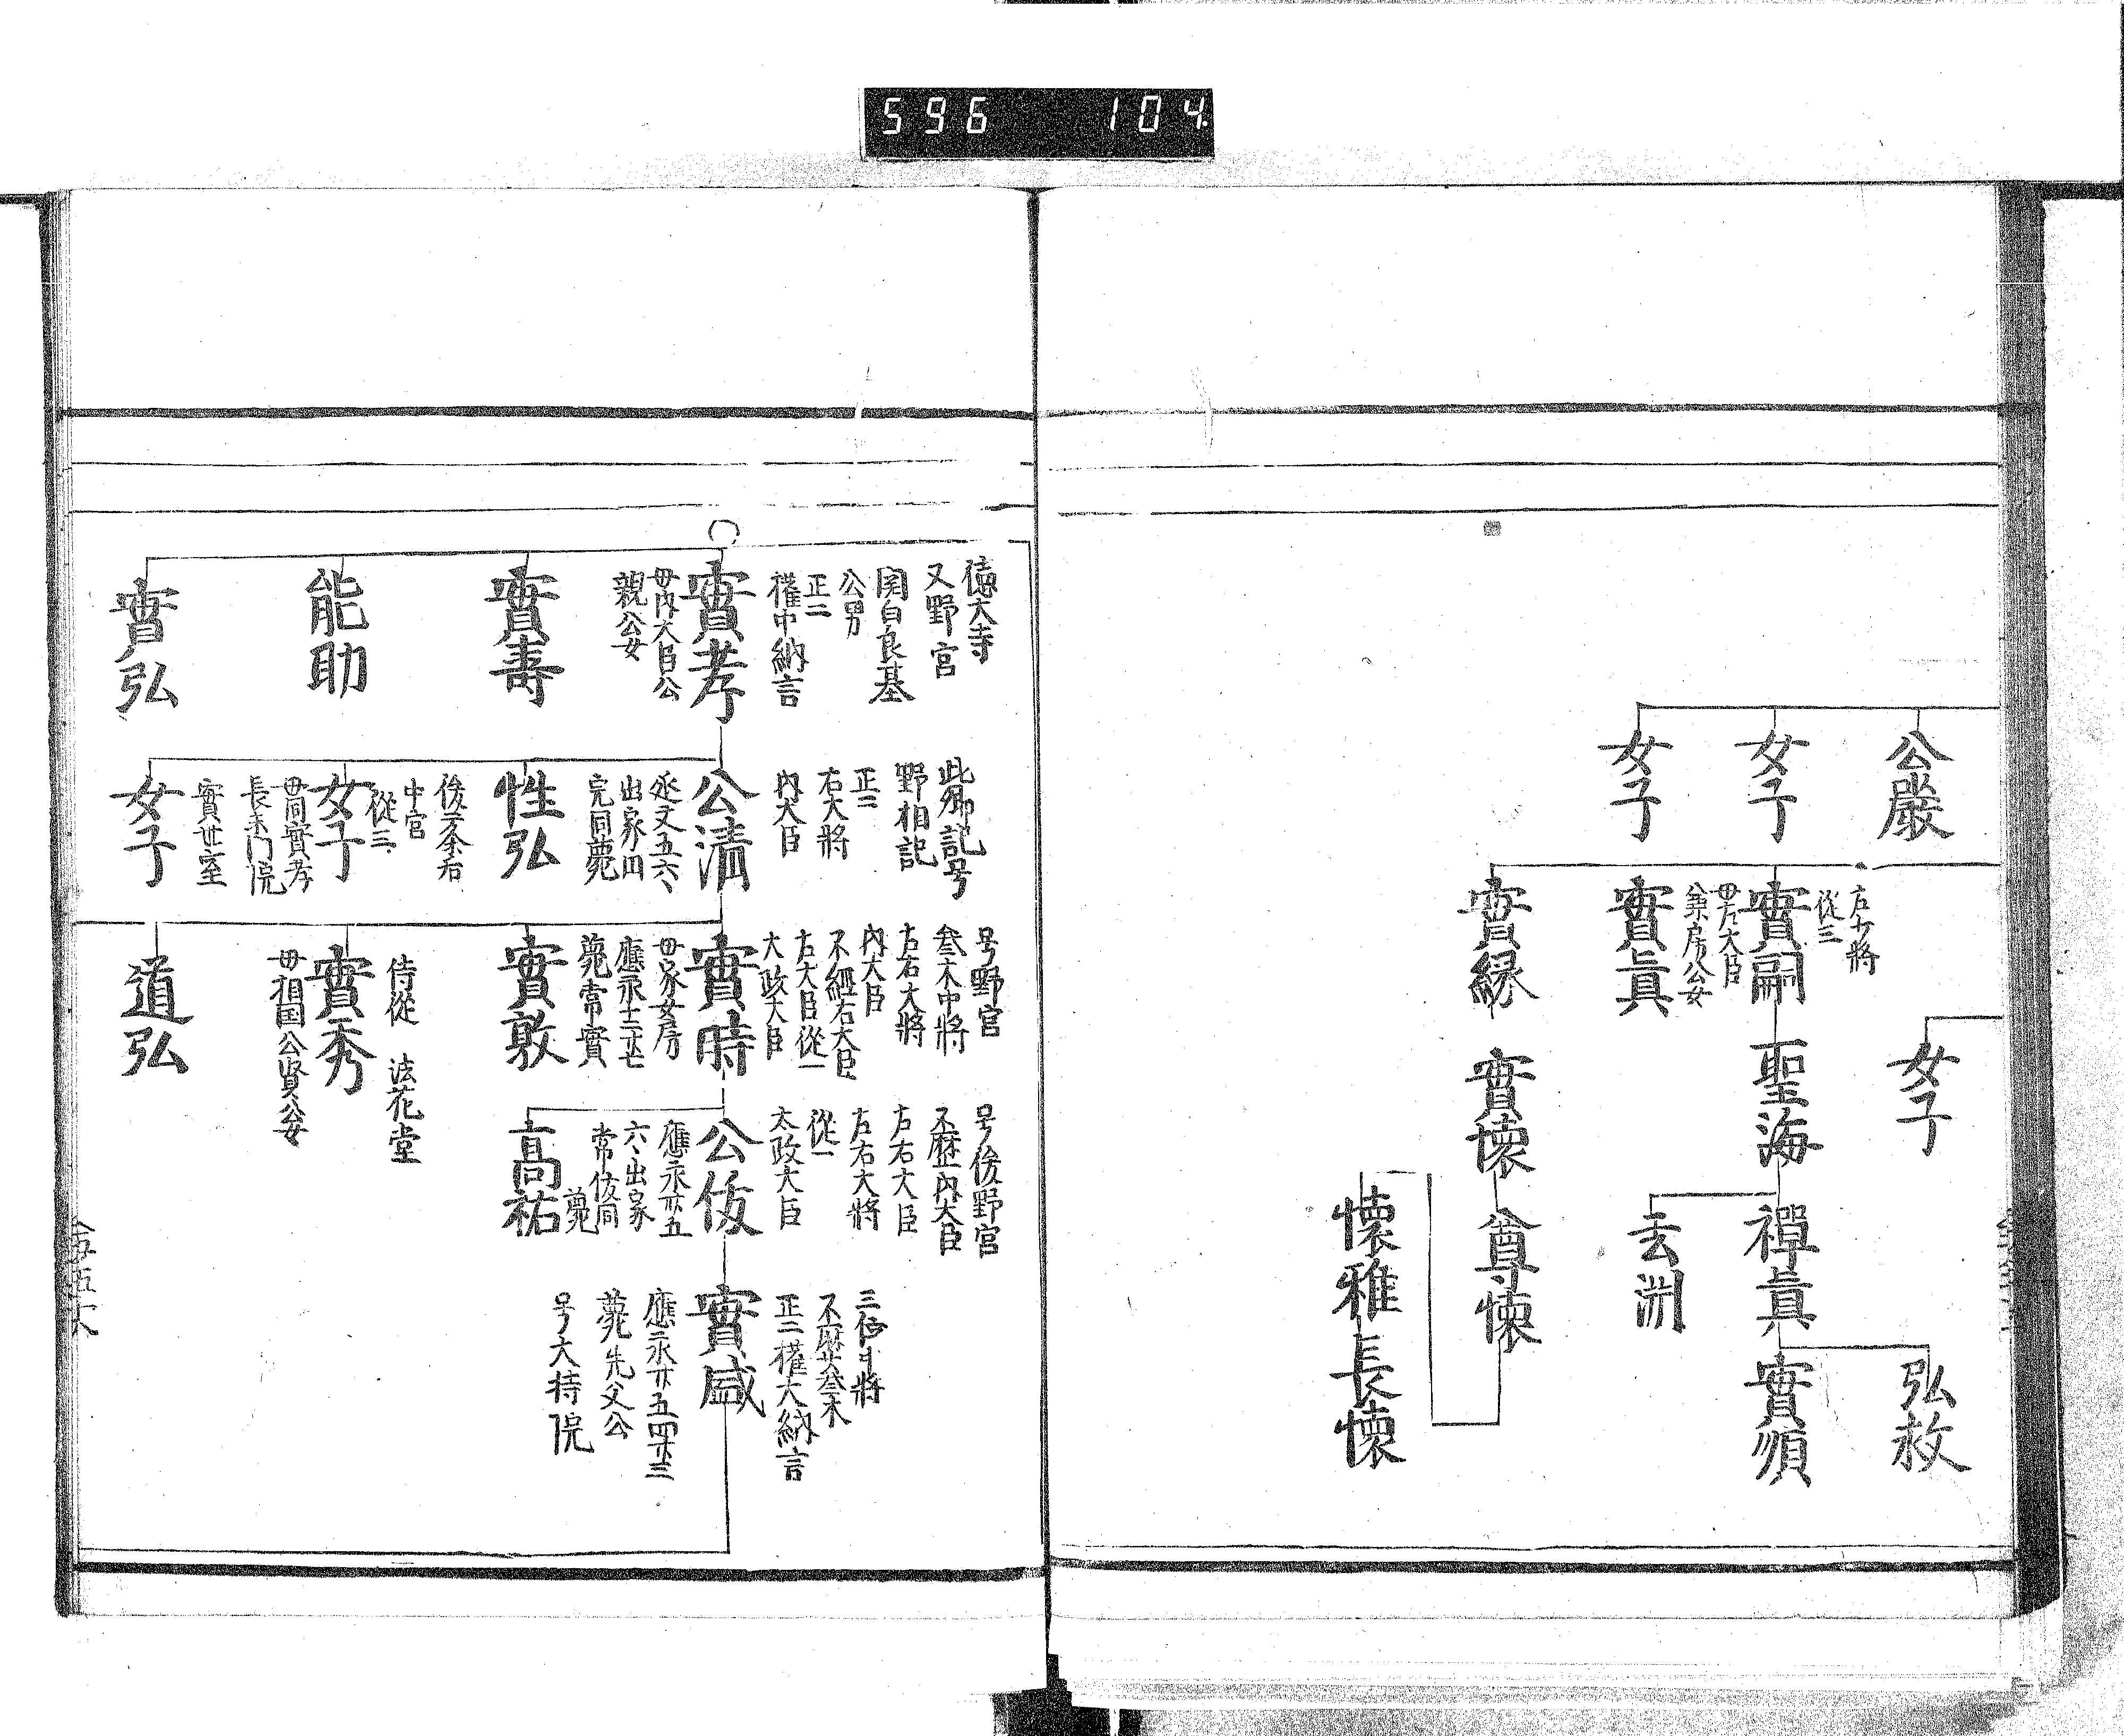 596 104
公嚴
女子
女子
左少將
從三
實嗣
母左大臣
公女
實眞
實緣
女子
聖海
實懷
禪眞
玄淵
尊懷
弘救
實順
懷雅
長懷
德大寺
又野宮
関白良基
公男
正二
權中納言
實孝
母內大臣公
親公女
實壽
能助
實弘
此卿記号
野相記
正二
右大將
內大臣
公清
延文五六八
出家同
完同薨
性弘
中宮
從三
女子
母同實孝
長禾門院
實世室
女子
号野宮
叅木中將
左右大將
內大臣
不經右大臣
左大臣從一
太政大臣
實時
母家女房
薨常實
實敦
侍從 法花堂
實秀
母相国公賢公女
道弘
号後野宮
不歷內大臣
左右大臣
左右大將
從一
太政大臣
公俊
應永廿五
六八出家
常俊同
薨
高祐
三位中將
不歷叅木
正二權大納言
實盛
應永廿五四廿三
薨先父公
号大持院